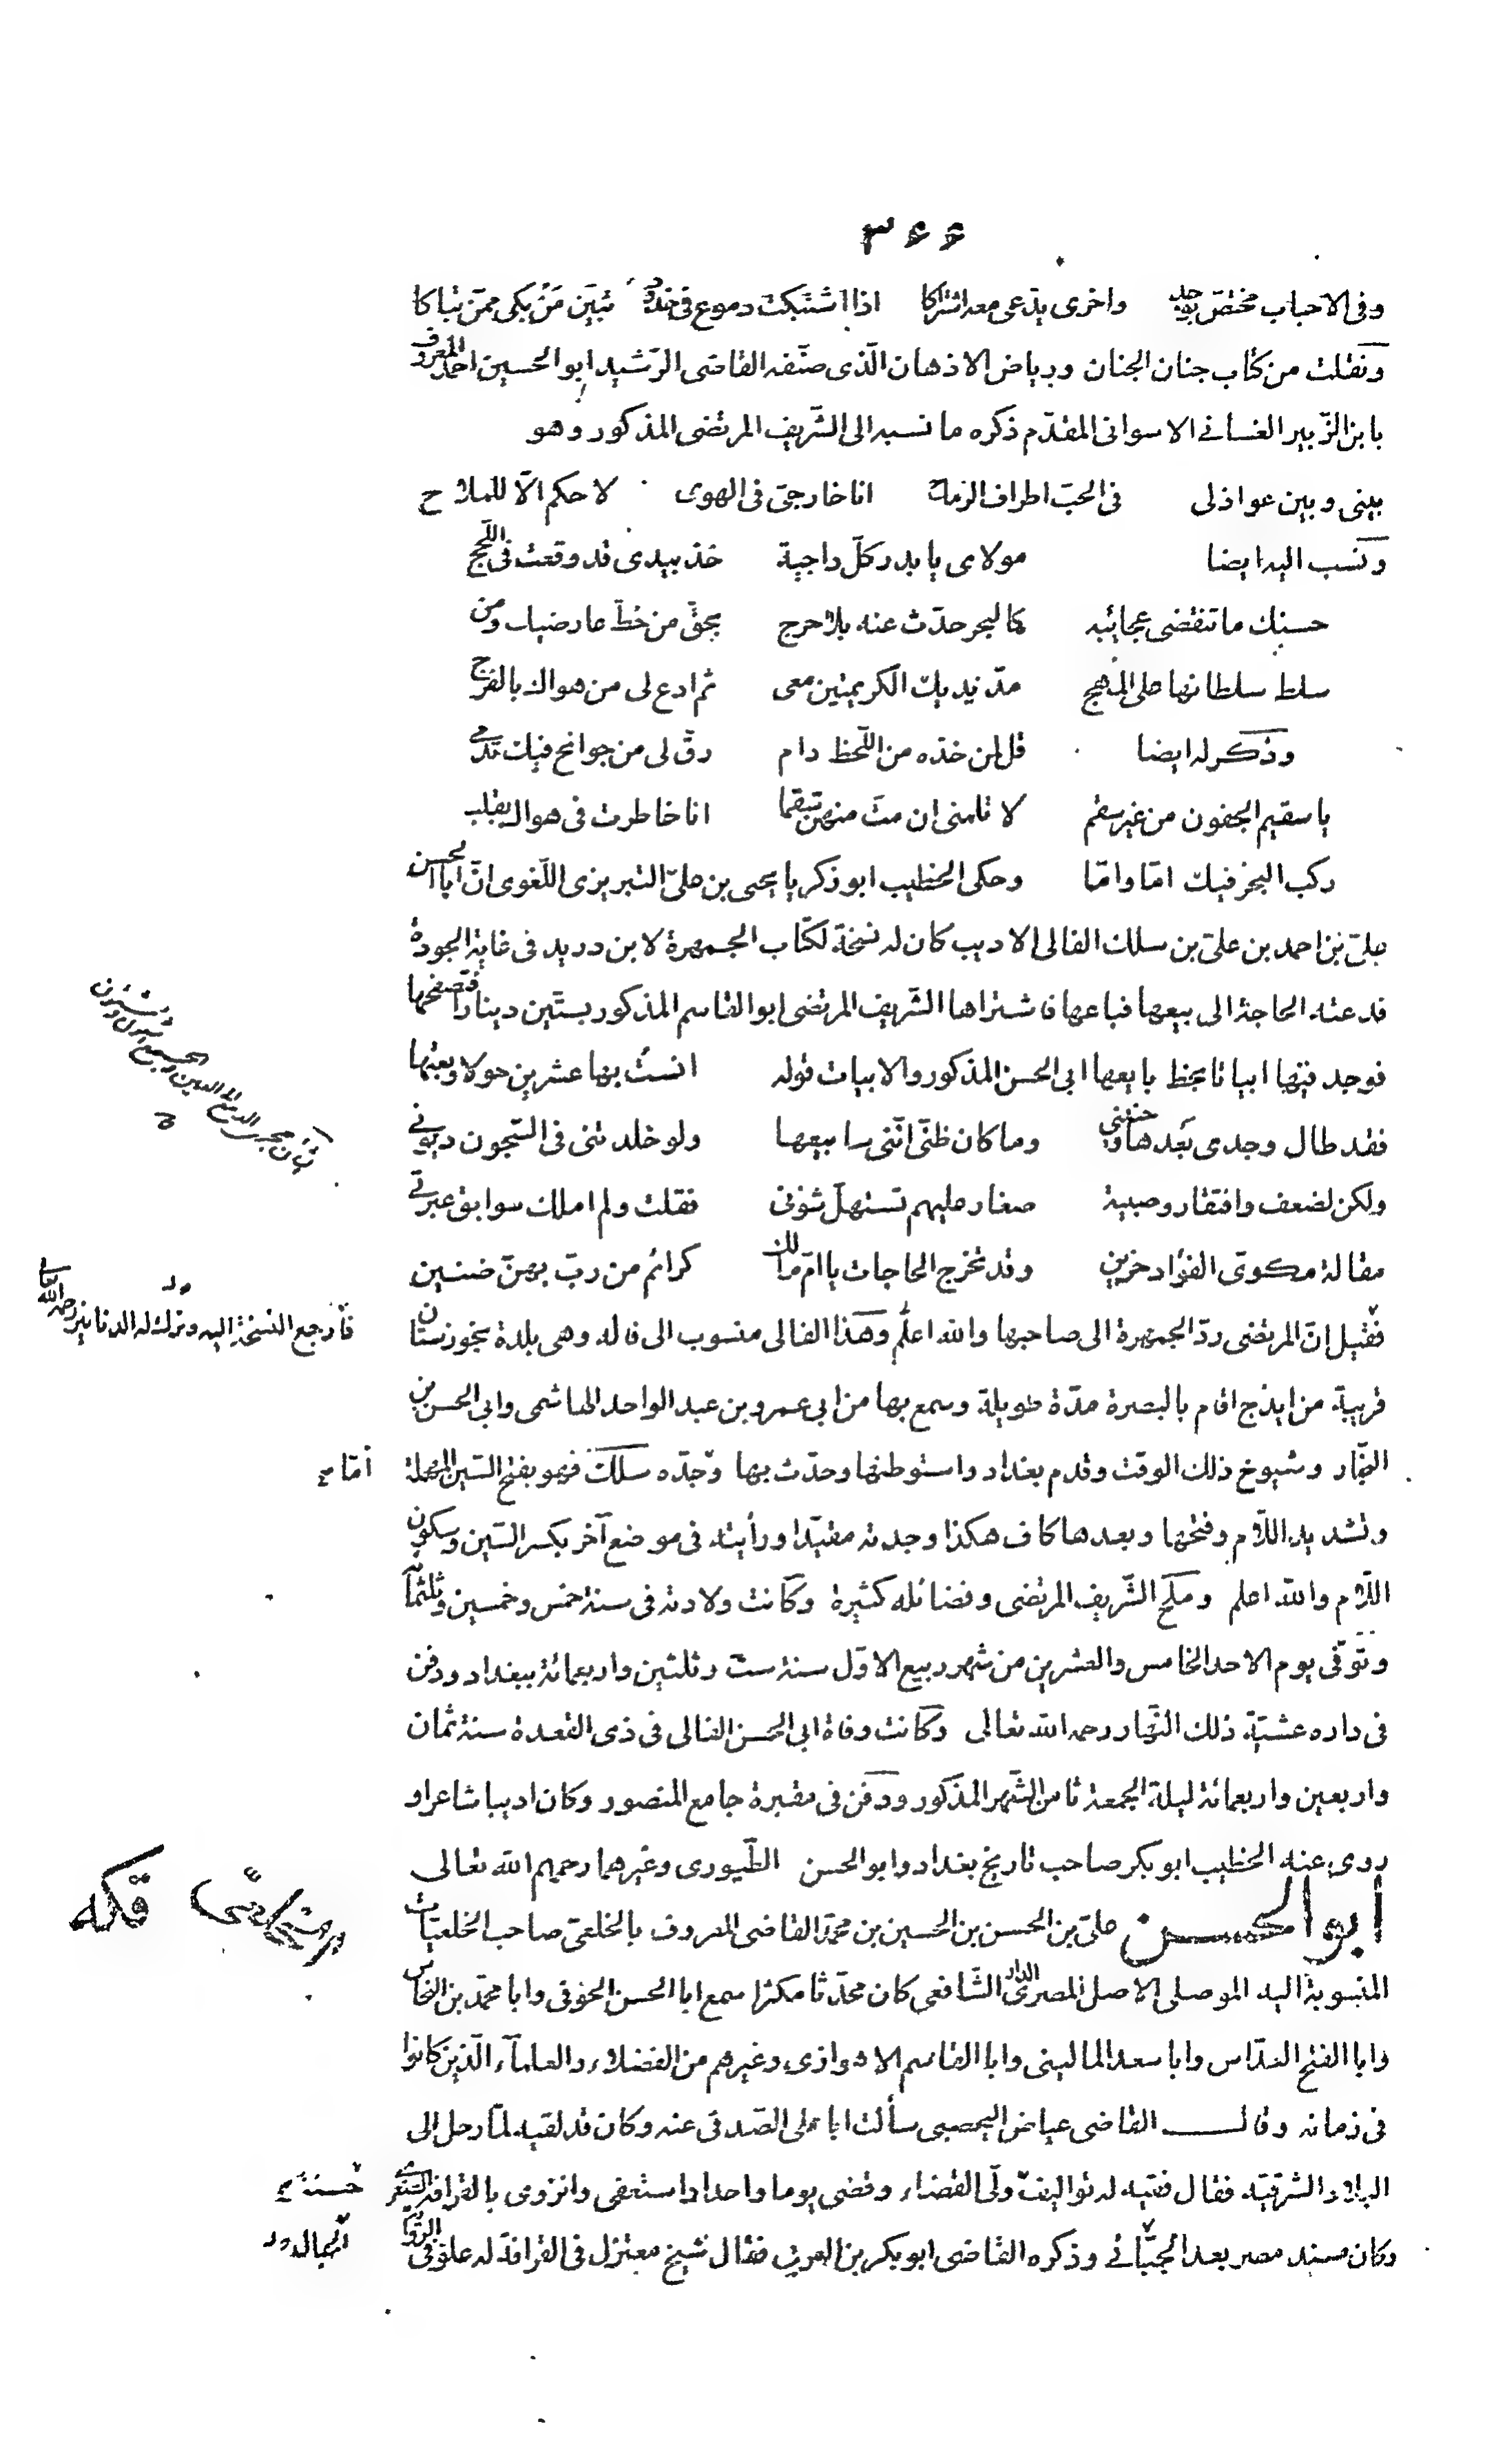 ٣٤٤
وفى الاحباب مختص بوجد واخرى يدّعى معه اشتراكا اذا اشتبكت دموع فى خدود تبيّن مَن بكى ممّن تباكا
ونقلت من كتاب جنان الجنان ورياض الاذهان الّذى صنّفه القاضى الرّشيد ابو الحسين احمد المعروف
بابن الزّبير الغسانى الاسوانى المقدّم ذكره ما نسبه الى الشّريف المرتضى المذكور وهو
بينى وبين عواذلى فى الحبّ اطراف الرماح انا خارجىّ فى الهوى لا حكم الّا للملاح
ونسب اليه ايضا مولاى يا بدر كلّ داجية خذ بيدى قد وقعت فى اللّجج
حسنك ما تنقضى عجائبه كالبحر حدّث عنه بلا حرج بحقّ من خطّ عارضيك ومن
سلط سلطانها على المهج مدّ يديك الكريمتين معى ثم ادع لى من هواك بالفرج
وذكر له ايضا قل لمن خدّه من اللّحظ دام رقّ لى من جوانح فيك تدمى
يا سقيم الجفون من غير سقم لا تلمنى ان متّ منهنّ سقما انا خاطرت فى هواك بقلب
ركب البحر فيك امّا وامّا وحكى الخطيب ابو زكريا يحيى بن علىّ التبريزى اللّغوى انّ ابا الحسن
علىّ بن احمد بن علىّ بن سلك الفالى الاديب كان له نسخة لكتاب الجمهرة لابن دريد فى غاية الجودة
فدعته الحاجة الى بيعها فباعها فاشتراها الشّريف المرتضى ابو القاسم المذكور بستّين دينارا فتصفحها
فوجد فيها ابياتا بخط بايعها ابى الحسن المذكور والابيات قوله انستُ بها عشرين حولا وبعتها
فقد طال وجدى بَعدها وحنينى وما كان ظنّى انّنى سابيعها ولو خلدتنى فى السّجون ديونى
ولكن لضعف وافتقار وصبية صغار عليهم تستهلّ شؤنى فقلت ولم املك سوابق عبرتى
مقالة مكوىّ الفؤاد حزين وقد تخرج الحاجات يا امّ مالك كرائم من ربّ بهنّ ضنين
فقيل انّ المرتضى ردّ الجمهرة الى صاحبها والله اعلم وهذا الفالى منسوب الى فاله وهى بلدة بخوزستان
فأرجع النسخة اليه وترك له الدنانير رحمه الله تعالى
قريبة من ايذج اقام بالبصرة مدّة طويلة وسمع بها من ابى عمرو بن عبد الواحد الهاشمى وابى الحسن بن
النجّار وشيوخ ذلك الوقت وقدم بغداد واستوطنها وحدّث بها وجدّه سلك فهو بفتح السّين المهملة
أمّا
وتشديد اللّام وفتحها وبعدها كاف هكذا وجدته مقيّدا ورأيته فى موضع آخر بكسر السّين وسكون
اللّام والله اعلم وملح الشّريف المرتضى وفضائله كثيرة وكانت ولادته فى سنة خمس وخمسين وثلثمائة
وتوفّى يوم الاحد الخامس والعشرين من شهر ربيع الاوّل سنة ستّ وثلثين واربعمائة ببغداد ودفن
فى داره عشيّة ذلك النّهار رحمه الله تعالى وكانت وفاة ابى الحسن الفالى فى ذى القعدة سنة ثمان
واربعين واربعمائة ليلة الجمعة ثامن الشّهر المذكور ودفن فى مقبرة جامع المنصور وكان اديبا شاعرا و
روى عنه الخطيب ابو بكر صاحب تاريخ بغداد وابو الحسن الطّيورى وغيرهما رحمهم الله تعالى
ابو الحسن علىّ بن الحسن بن الحسين بن محمّد القاضى المعروف بالخلعىّ صاحب الخلعيّات
المنسوبة اليه الموصلى الاصل المصرى الدار الشّافعى كان محدّثا مكثرا سمع ابا الحسن الحوفى وابا محمّد بن النحّاس
وابا الفتح العدّاس وابا سعد المالينى وابا القاسم الاهوازى وغيرهم من الفضلاء والعلمآء الّذين كانوا
فى زمانه وقال القاضى عياض اليحصبى سألت ابا على الصّدفى عنه وكان قد لقيه لمّا رحل الى
البلاد الشرقيّة فقال فقيه له تواليف ولّى القضاء وقضى يوما واحدا واستعفى وانزوى بالقرافة الصّغرى
وكان مسند مصر بعد الحبّال وذكره القاضى ابو بكر بن العربى فقال شيخ معتزل فى القرافة له علوّ فى